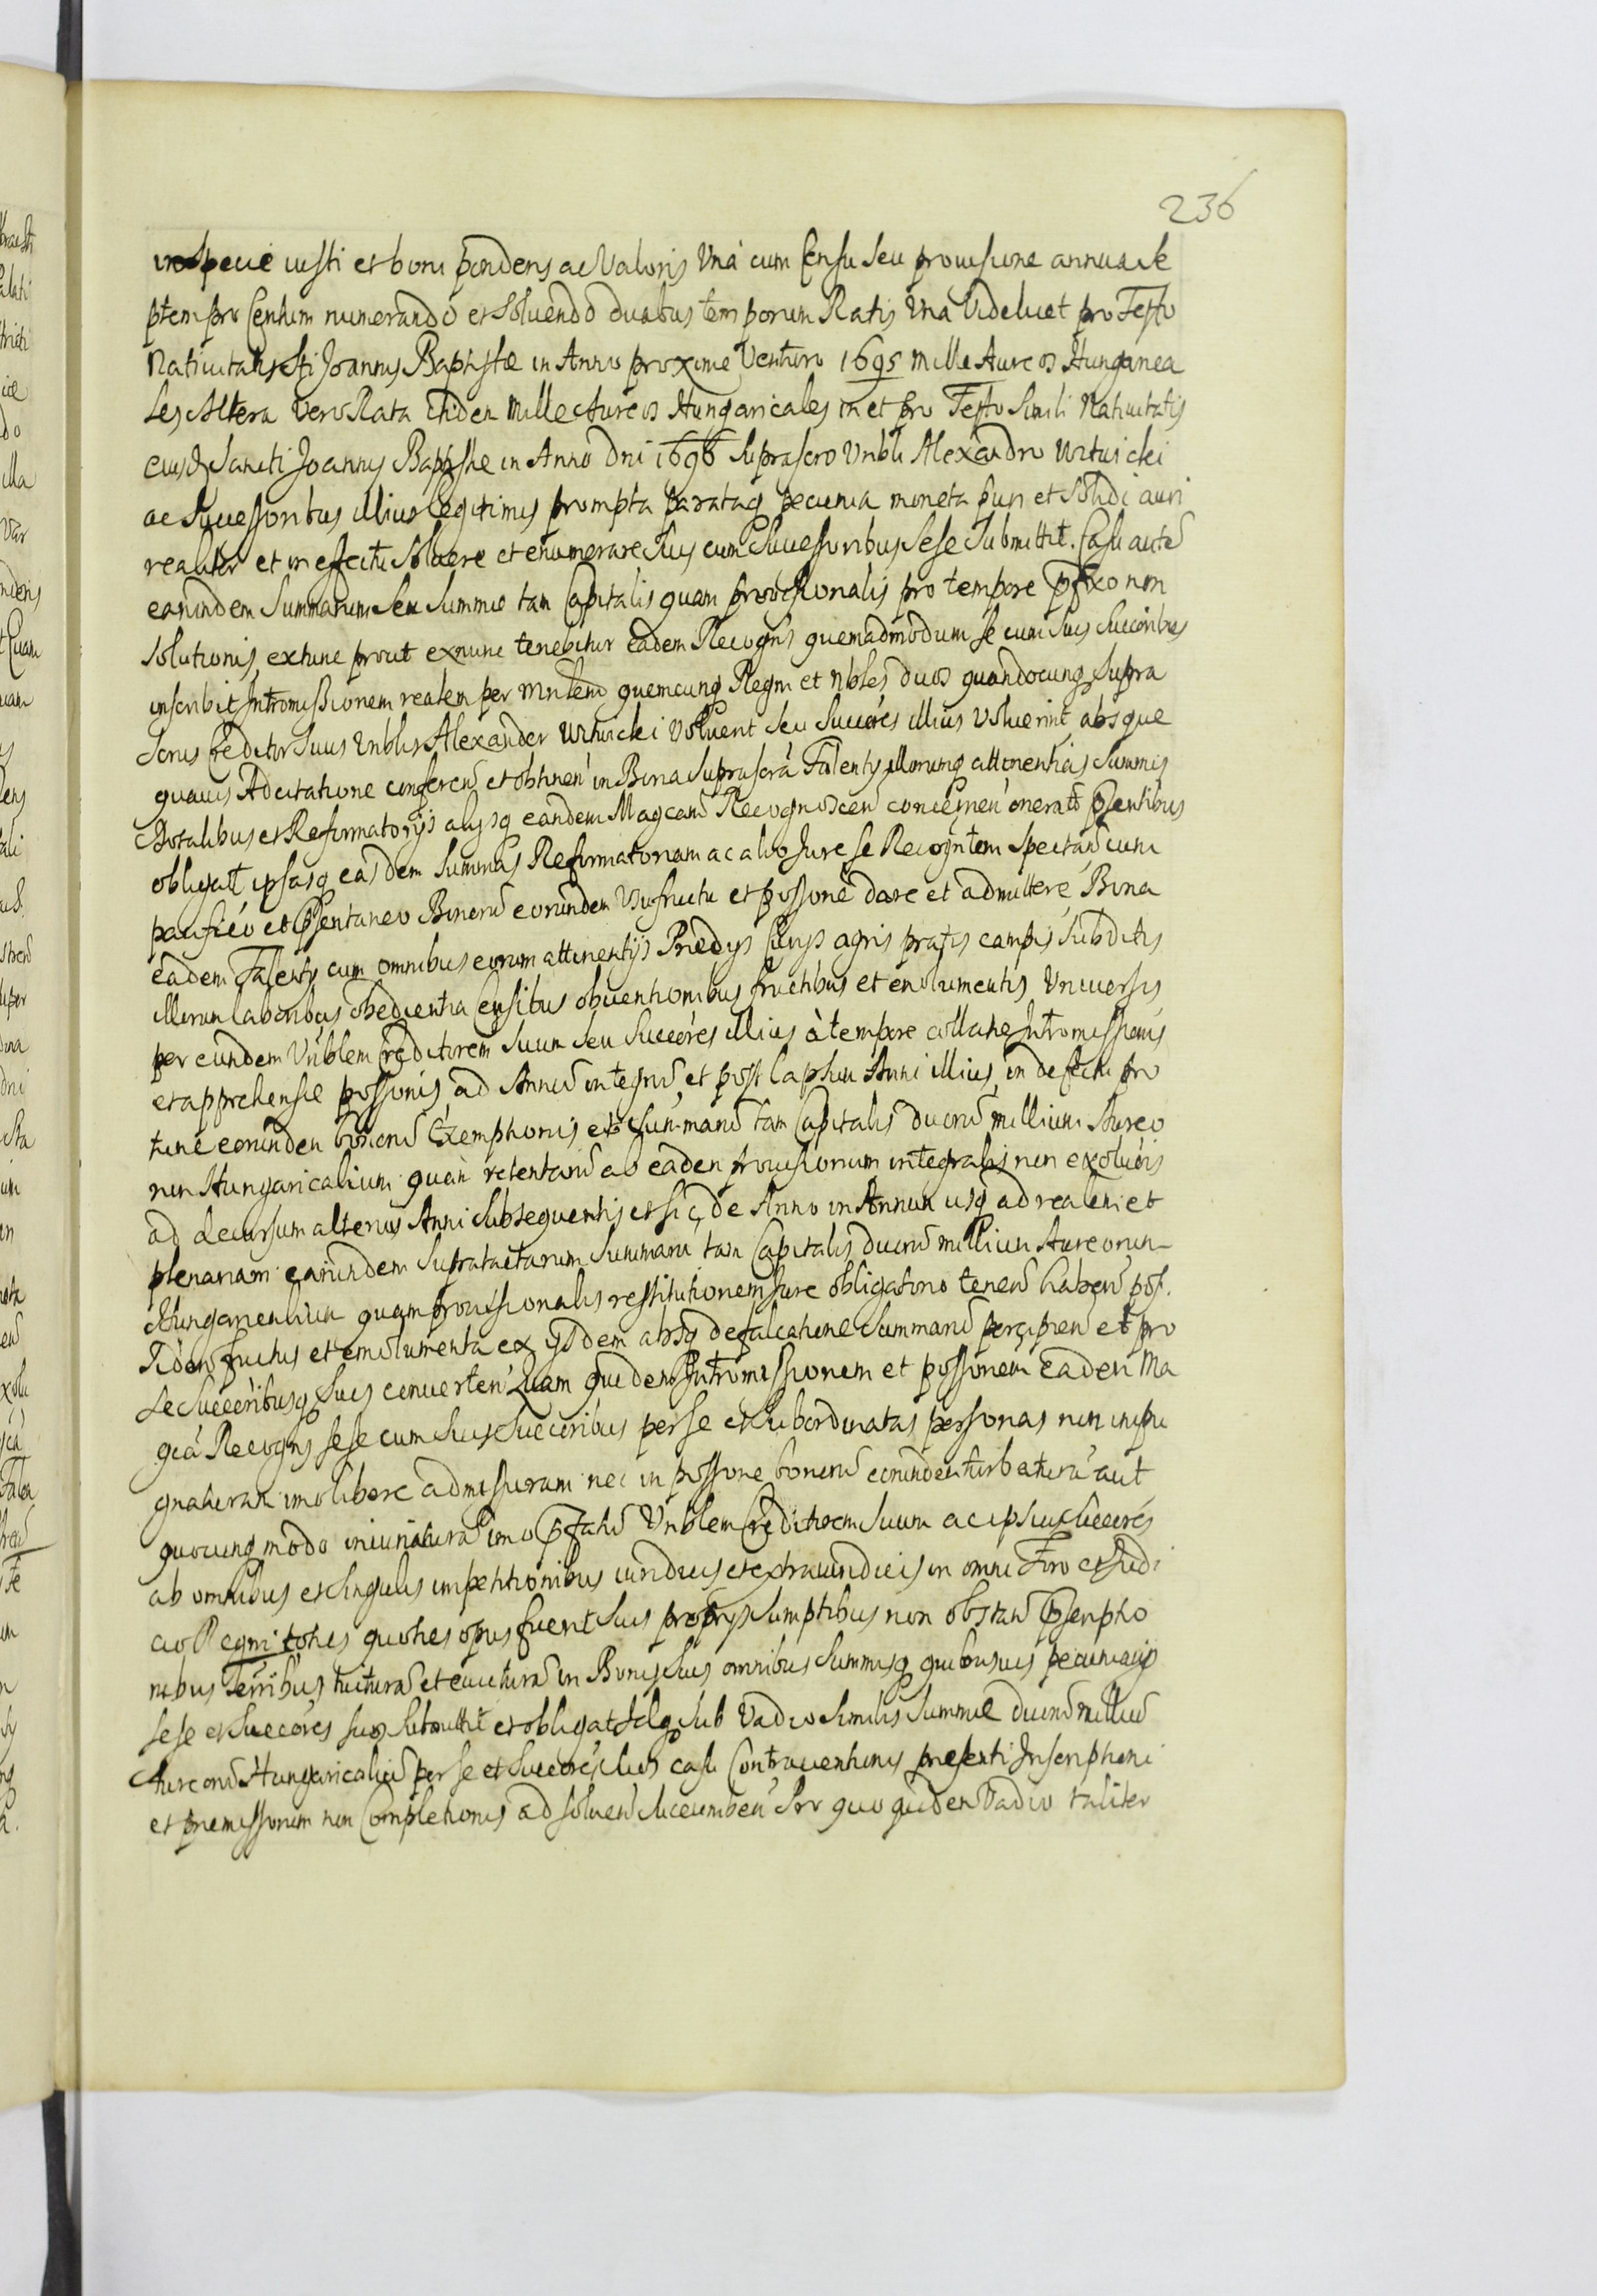 236
in specie iusti et boni ponderis ac Valoris Una cum Censu seu prouisione annua se
ptem pro Centum numerando et soluendo duabus temporum Ratis Una Videlicet pro Festo
Natiuitatis Sti Joannis Baptistæ in Anno proxime Venturo 1695 mille Aureos Hungarica
les Altera Vero Rata itidem Mille Aureos Hungaricales in et pro Festo Simili Natiuitatis
eiusd Sancti Joannis Baptistæ in Anno Dni 1696 suprascro Urbli Alexandro
ac Successoribus illius legitimis prompta parataq pecunia moneta puri et solidi auri
realiter et in effectu soluere et enumerare suis cum Successoribus sese submittit. Casu autē
earundem Summarum seu Summæ tam Capitalis quam prouisionalis pro tempore pfixo non
solutionis, extunc prout exnunc tenebitur eadem Recogns quemadmodum se cum suis succoribus
inscribit Intromissionem realem per Mnlem quemcunq Regni et Nbles duos quandocunq supra
scrus Creditor suus Urblis Alexander Voluerit seu Succores illius Voluerint absque
quauis Adcitatione conferen et obtinen in Bona suprascra Talenty illorumq attinentias Summis
Dotalibus et Reformatorijs alijsq eandem Magcam Recognoscen concernen onerat psentibus
obligat ipsasq easdem Summas Reformatoriam ac alio Jure se Recogntem spectan cum
pacifico et psentaneo Bonorū eorundem Usufructu et possone dare et admittere, Bona
eadem Talenty cum omnibus eorum attinentijs Prædijs agris pratis campis subditis
illorum laboribus obedientia Censibus obuentionibus fructibus et emolumentis Uniuersis
per eundem Urblem Creditorem suum seu Succores illius à tempore collatæ Intromissionis
et apprehensæ possonis ad Annū integrū et post lapsum Anni illius in defectu pro
tunc eorundem bonorū Exemptionis et summarū tam Capitalis duorū millium Aureo
rum Hungaricalium quam retentarū ab eadem prouisionum integralis non exolutonis
ad decursum alterius Anni subsequentis et sic de Anno in Annum usq ad realem et
plenariam earundem supratactarum Summarū tam Capitalis duorū millium Aureorum
Hungaricalium quam prouisionalis restitutionem Jure obligatorio tenen haben pos
siden fructus et emolumenta ex ijsdem absq defalcatione Summarū percipien et pro
se Succoribusq suis conuerten Quam quidem Intromissionem et possonem Eadem Ma
gca Recogns sese cum suis Succoribus per se et subordinatas personas non impu
gnaturam imo libere admissuram nec in possone bonorū eorundem turbaturā aut
quocunq modo iniuriaturā imo pfatū Urblem Creditorem suum ac ipsius Succores
ab omnibus et singulis impetitionibus iuridicis et extraiuridicis in omni Foro et Judi
cio Regni toties quoties opus fuerit suis proprijs sumptibus non obstan pscriptio
nibus Terribus tuiturā et euicturā in Bonis suis omnibus Summisq quibusuis pecuniarijs
sese et Succores suos submittit et obligat Idq sub Vadio similis Summæ duorū milliū
Aureorū Hungaricaliū per se et Succores suos casu Contrauentionis presenti Inscriptioni
et premissorum non Completionis ad soluen succumben Pro quo quidem Vadio taliter